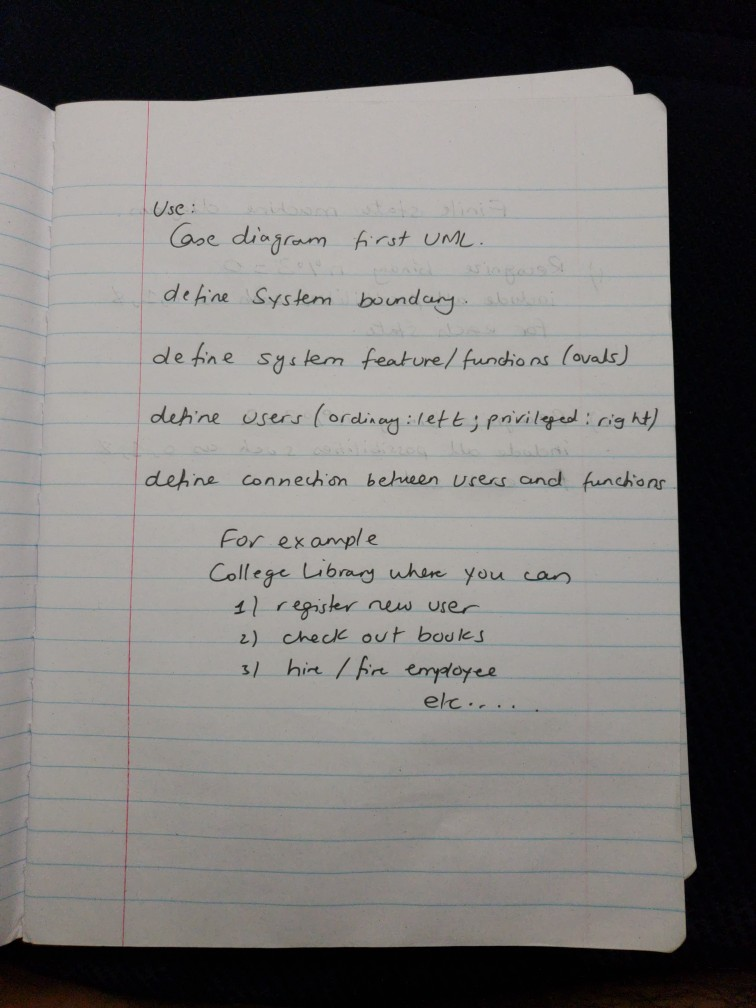 Use:
Case diagram first UML.
define System boundary.
define system feature/functions (ovals)
define users (ordinary:left; privileged: right)
define connection between users and functions
For example
College Library where you can
1) register new user
2) check out books
3) hire / fire employee
etc.....